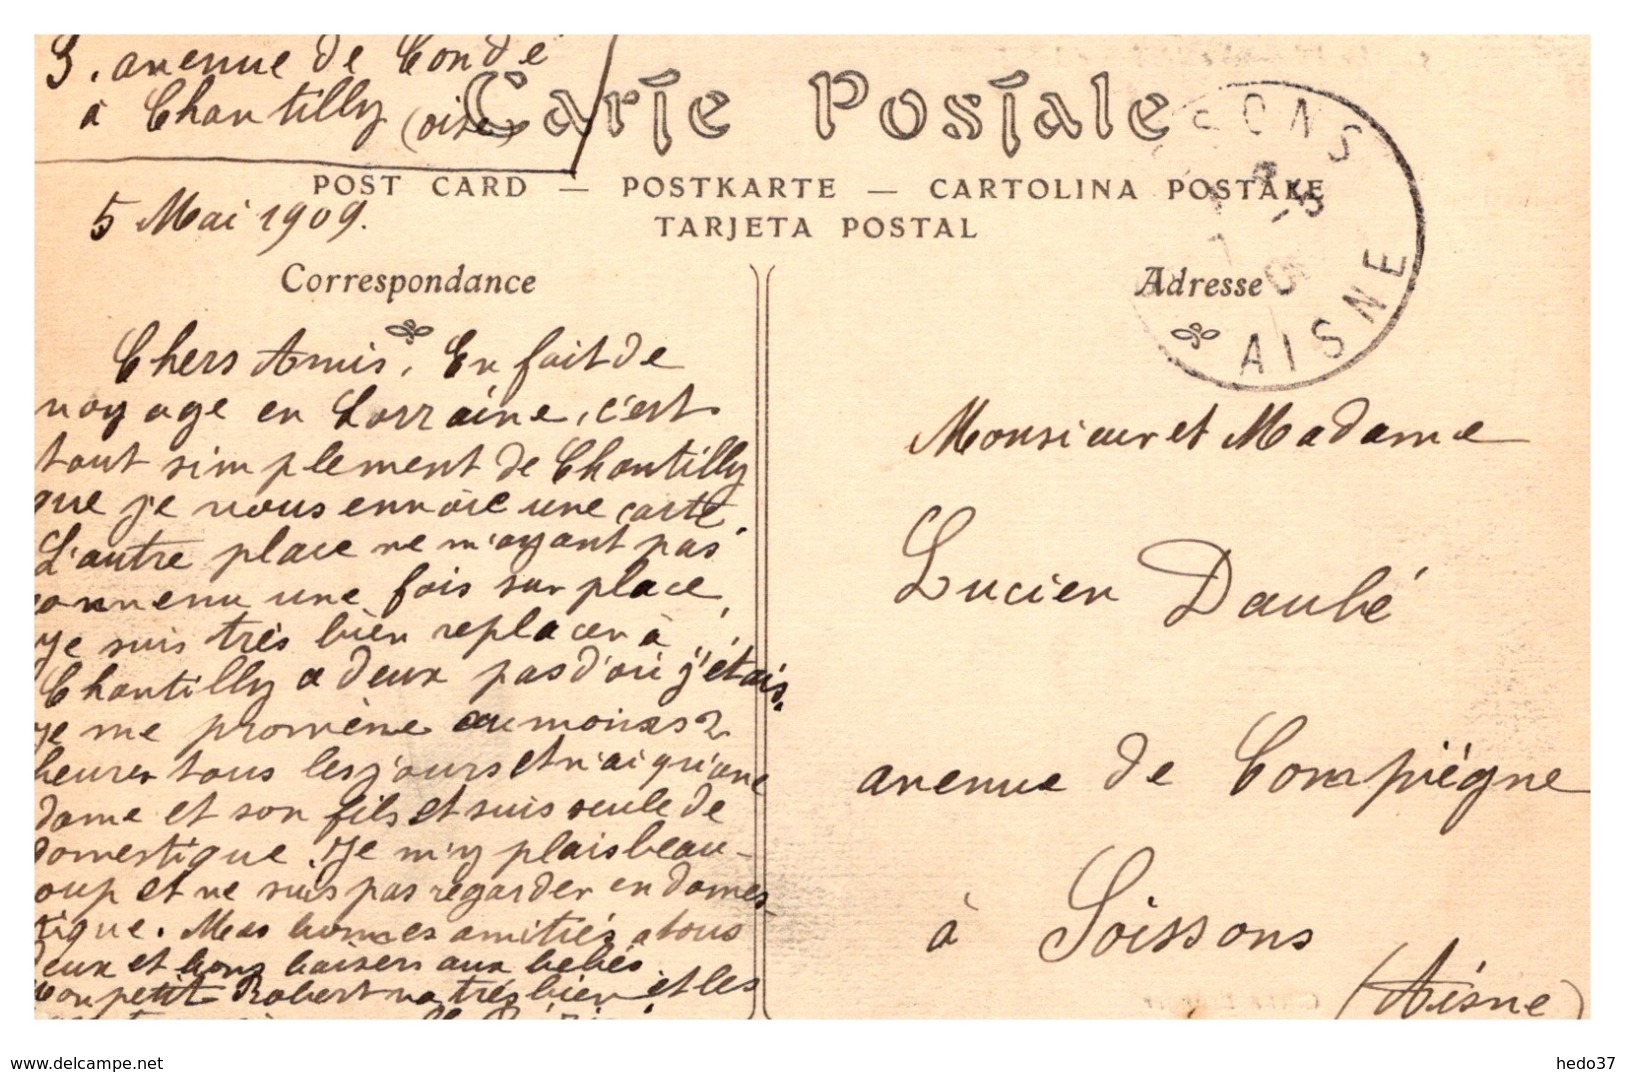 3, avenue de Condé
à Chantilly (oise)
Carte Postale
POST CARD — POSTKARTE — CARTOLINA POSTALE
TARJETA POSTAL
5 Mai 1909.
Correspondance
Chers Amis, En fait de
voyage en Lorraine, c'est
tout simplement de Chantilly
que je vous envoie une carte.
L'autre place ne m'ayant pas
convenu une fois sur place,
Je suis très bien replacer à
Chantilly a deux pas d'où j'étais.
Je me promène au moins 2
heures tous les jours et n'ai qu'une
dame et son fils et suis seule de
domestique. Je m'y plais beau-
oup et ne suis pas regarder en domes
tique. Mes bonnes amitiés a tous
deux et bons baisers aux bébés
Mon petit Robert va très bien et les
Adresse
SONS
AISNE
Monsieur et Madame
Lucien Daubé
avenue de Compiègne
à Soissons
(Aisne)
www.delcampe.net
hedo37